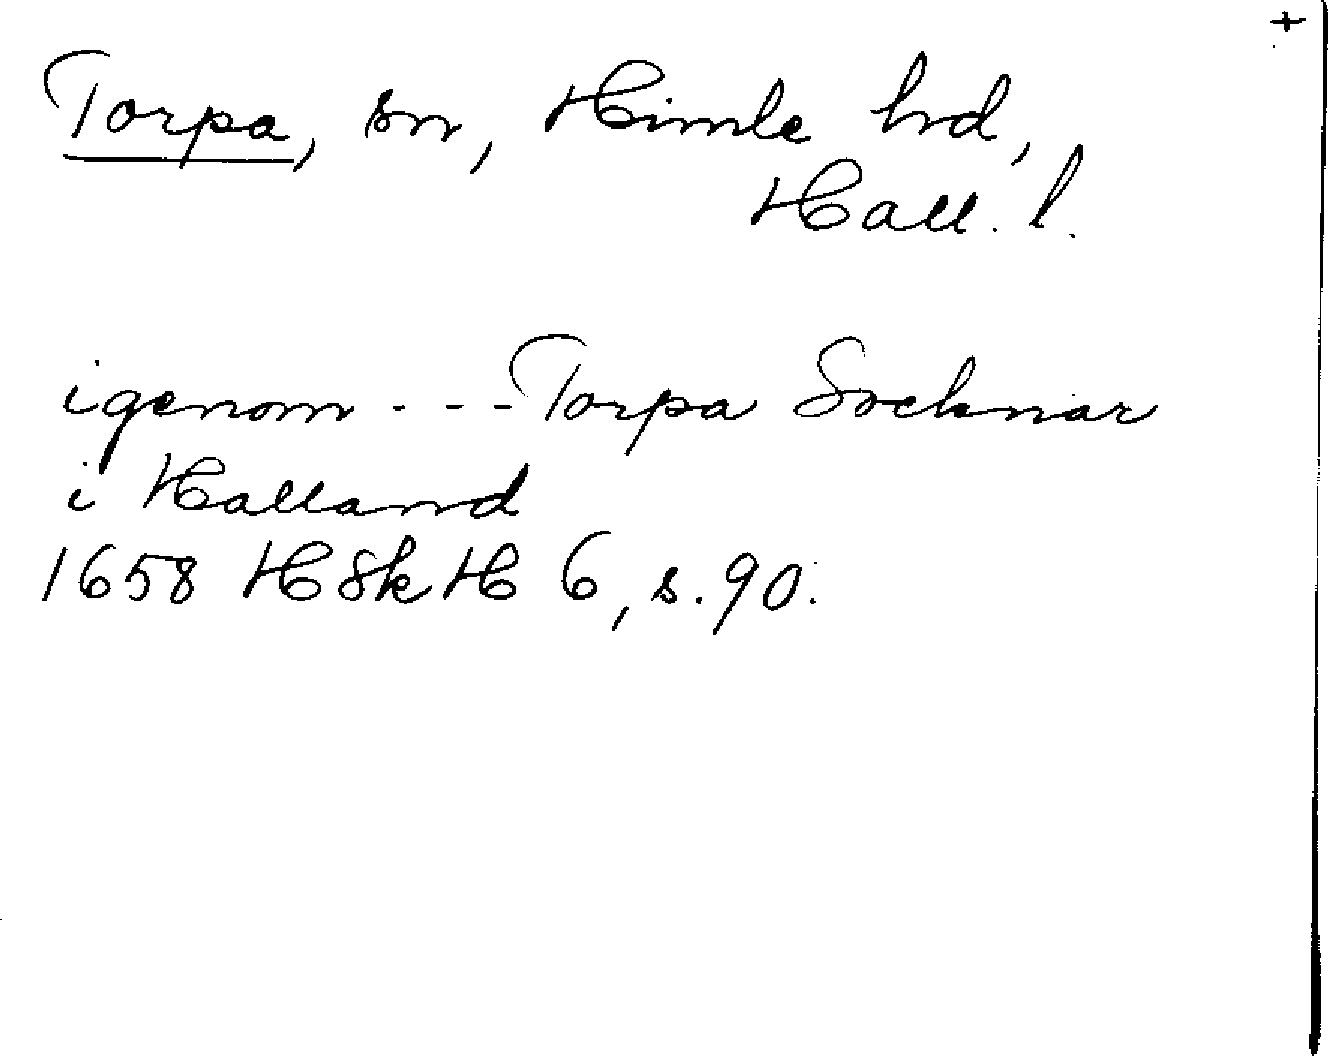 +
Torpa, sn, Himle hd,
Hall. l.
igenom - - - Torpa Socknar
i Halland
1658 HSkH 6, s. 90.